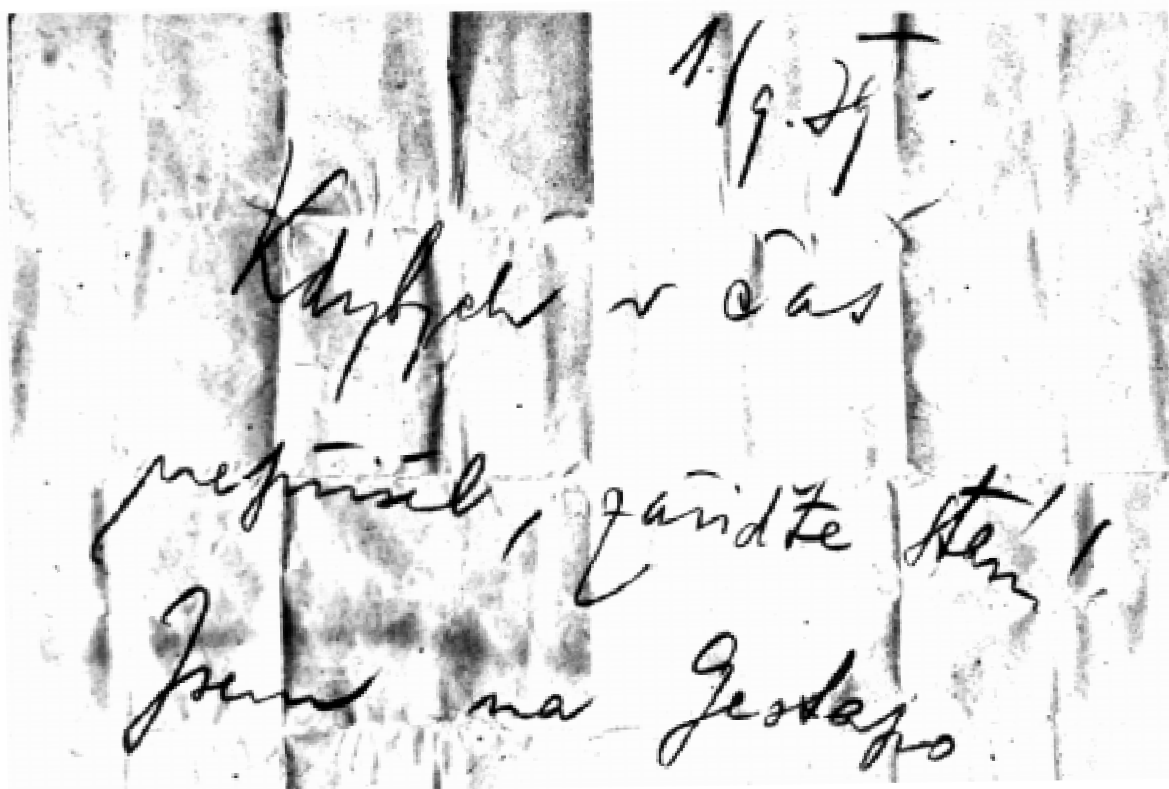 1./9.39.
Kdybych v čas
nepřišel, zařiďte
Jsem na Gestapo